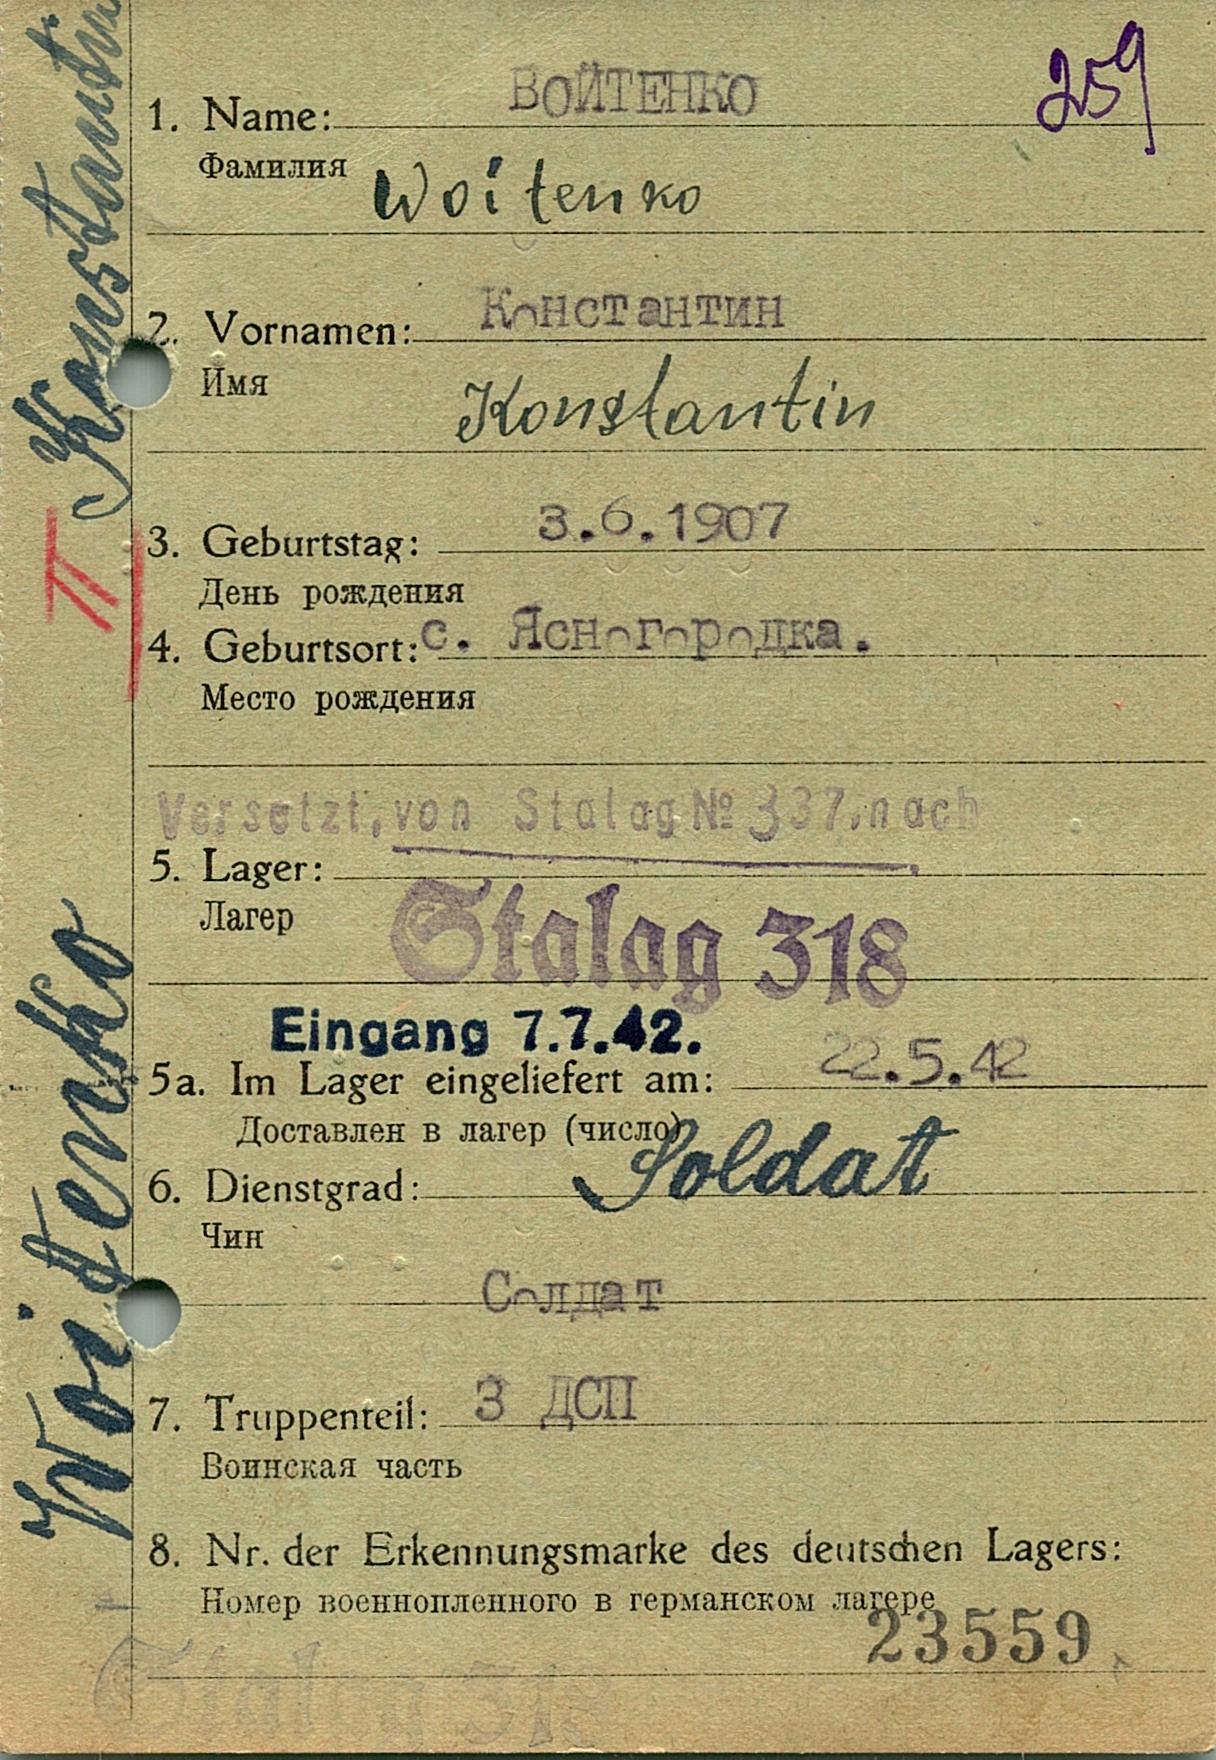 259
ВОЙТЕНКО
1. Name:
Фамилия
Woitenko
Константин
2. Vornamen:
Имя
Konstantin
3.6.1907
3. Geburtstag:
День рождения
4. Geburtsort: с. Ясногородка.
Место рождения
Versetzt, von Stalag № 337. nach
5. Lager:
Лагер
Stalag 318
Eingang 7.7.42.
22.5.42
5a. Im Lager eingeliefert am:
Доставлен в лагер (число)
Soldat
6. Dienstgrad:
Чин
Солдат
7. Truppenteil: 3 ДСП
Воинская часть
8. Nr. der Erkennungsmarke des deutschen Lagers:
Номер военнопленного в германском лагере
23559
Stalag 318
Woitenko Konstantin
II